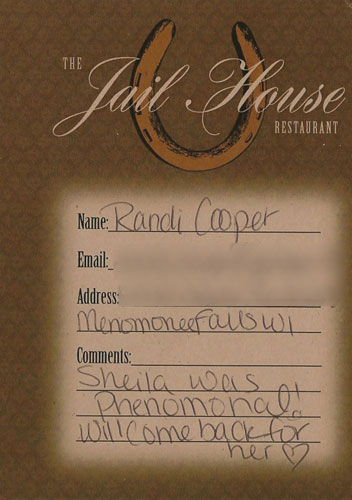 THE
Jail House
RESTAURANT
Name: Randi Cooper
Email:
Address:
Menomonee Falls WI
Comments:
Sheila was
Phenomonal!
Will come back for
her ♡